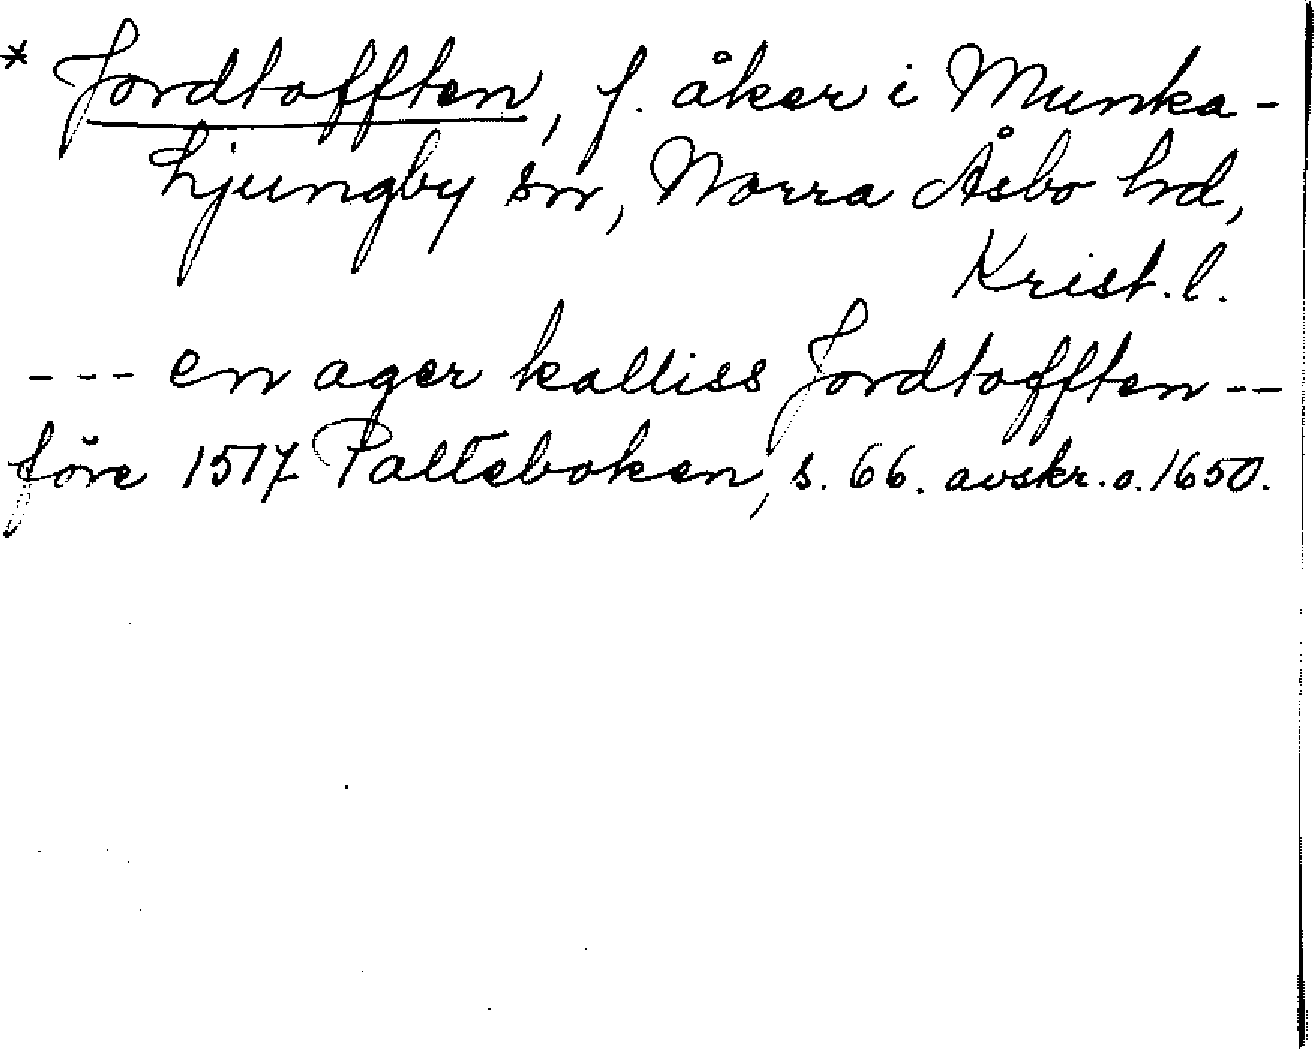 * Jordtofften, f. åker i Munka-
Ljungby sn, Norra Åsbo hd,
Krist. l.
--- en ager kalliss Jordtofften --
före 1517 Palteboken, s. 66. avskr. o. 1650.